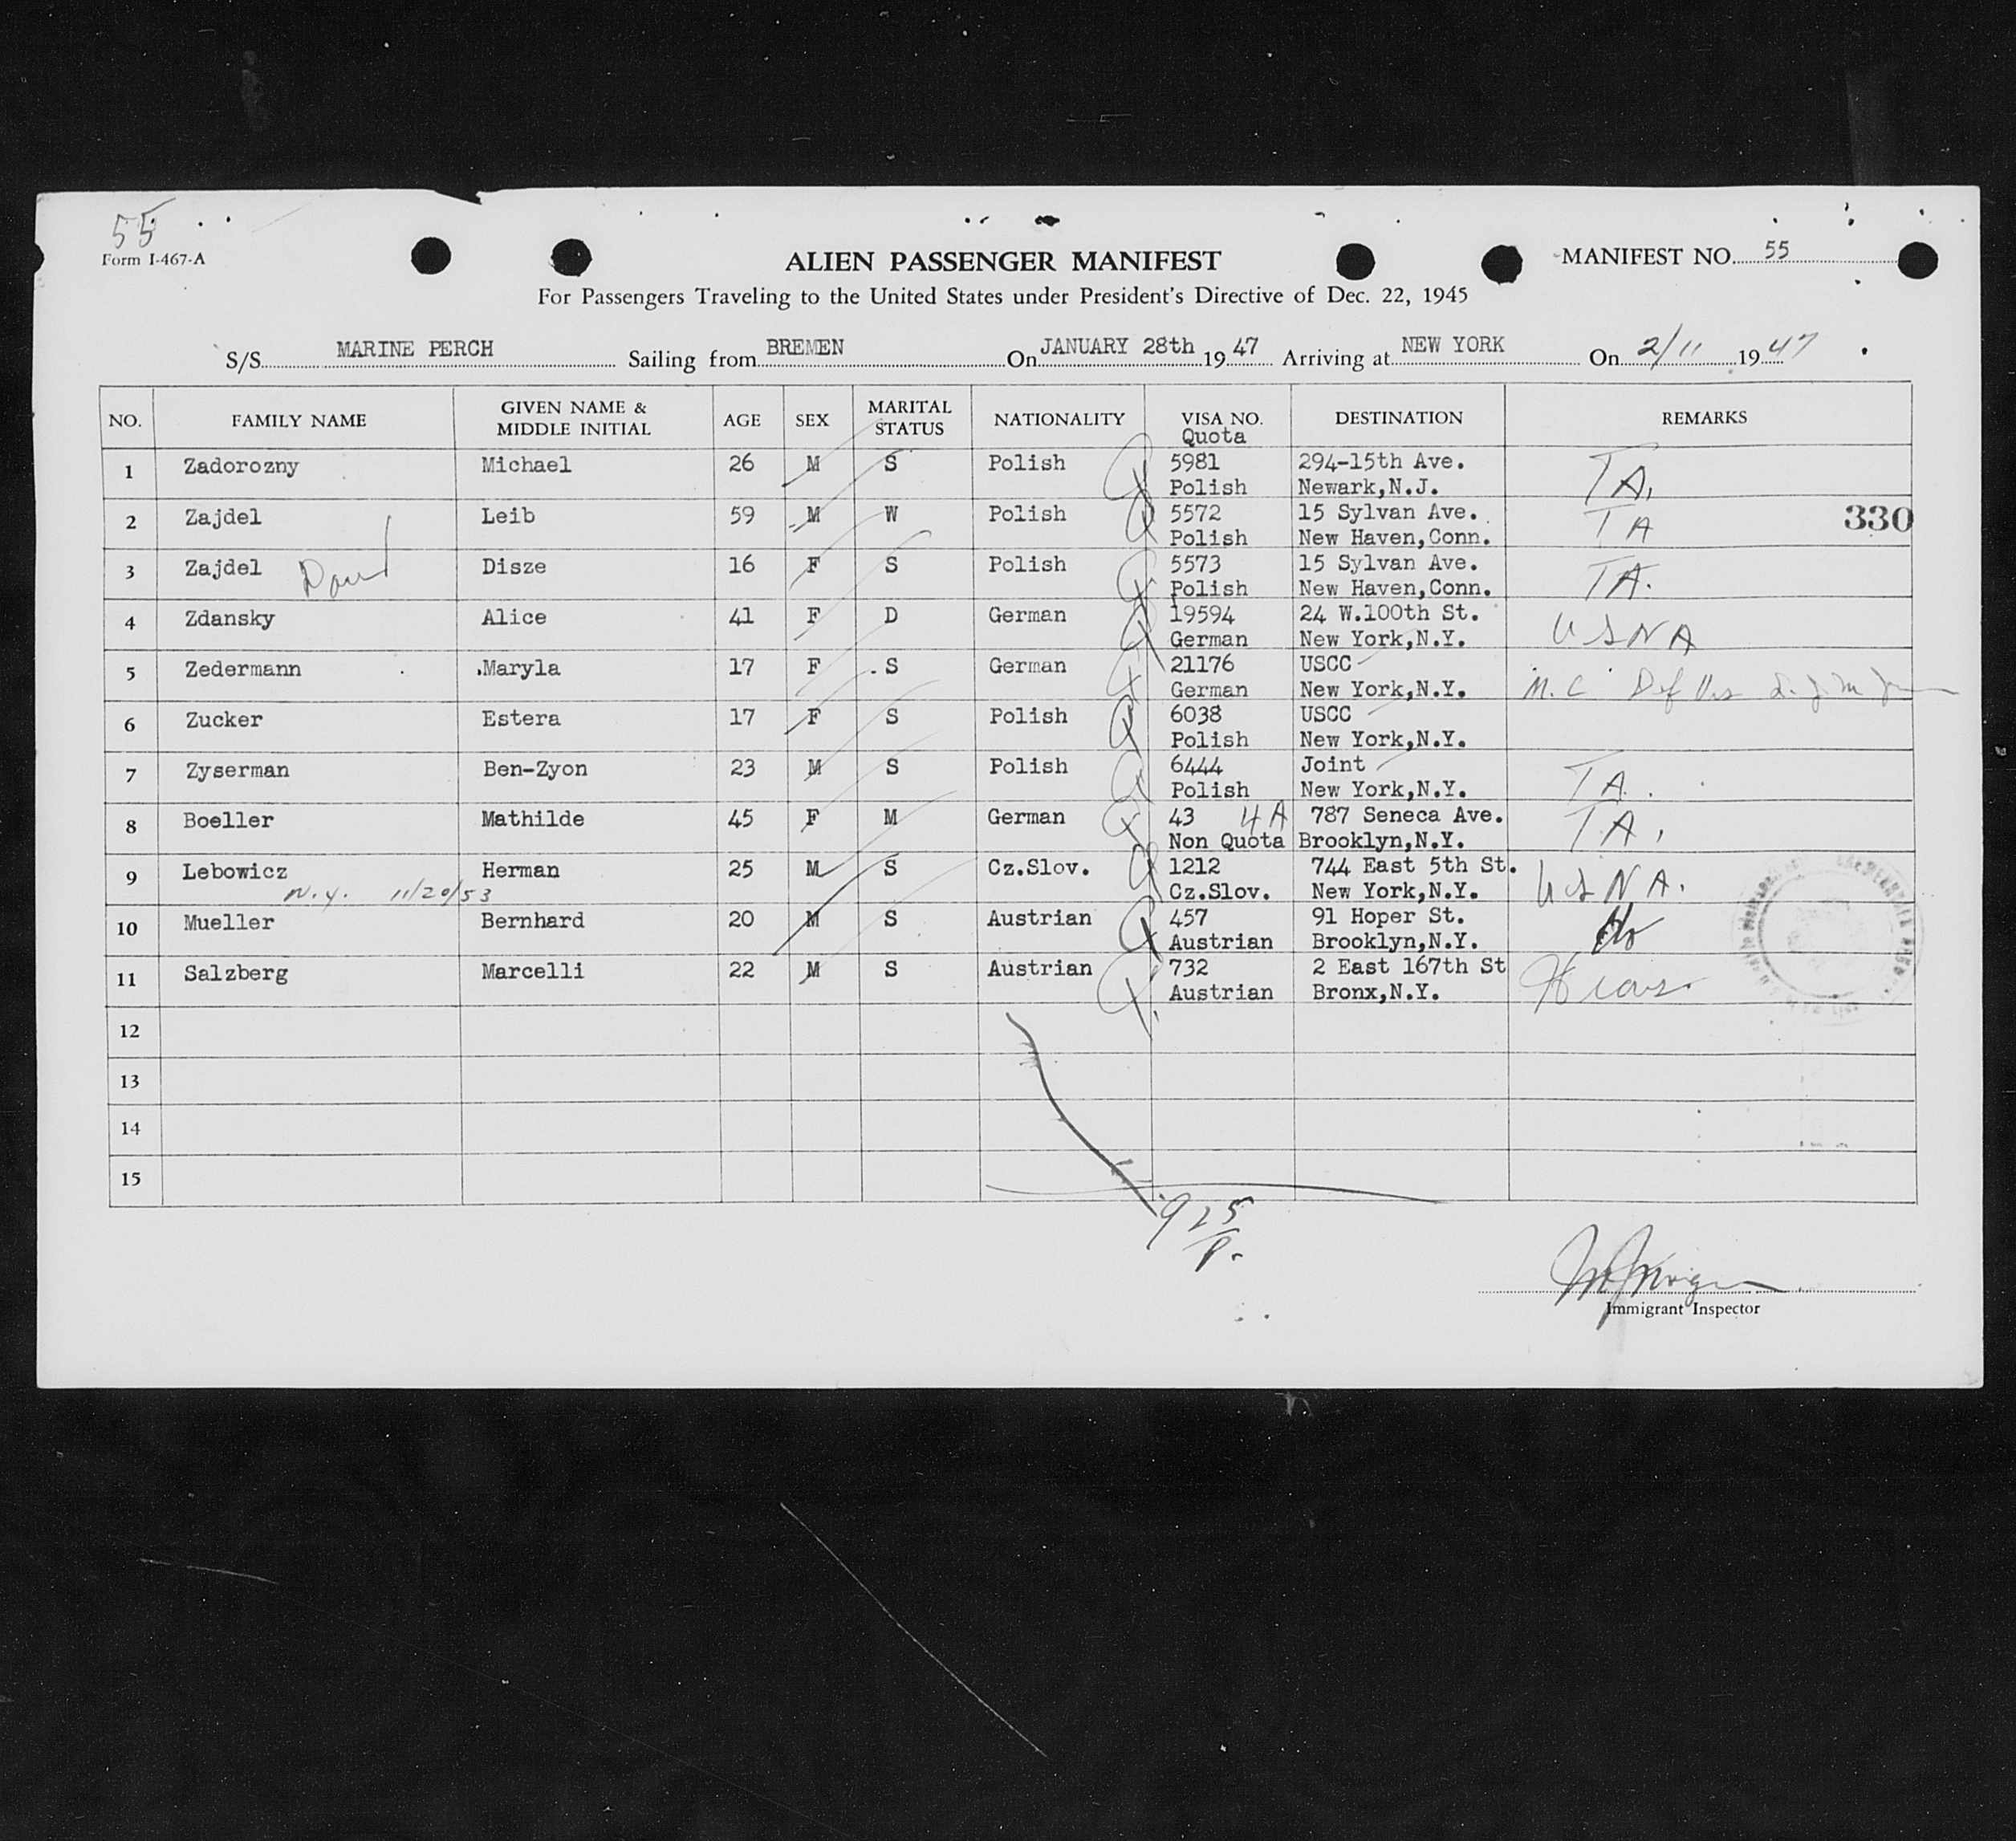 55
Form I-467-A
ALIEN PASSENGER MANIFEST
MANIFEST NO. 55
For Passengers Traveling to the United States under President's Directive of Dec. 22, 1945
S/S MARINE PERCH Sailing from BREMEN On JANUARY 28th 19 47 Arriving at NEW YORK On 2/11 19 47
NO. FAMILY NAME GIVEN NAME & MIDDLE INITIAL AGE SEX MARITAL STATUS NATIONALITY VISA NO. DESTINATION REMARKS
Quota
1 Zadorozny Michael 26 M S Polish 5981 294-15th Ave. TA.
Polish Newark,N.J.
2 Zajdel Leib 59 M W Polish 5572 15 Sylvan Ave. TA 330
Polish New Haven,Conn.
3 Zajdel Disze 16 F S Polish 5573 15 Sylvan Ave. TA.
Polish New Haven,Conn.
4 Zdansky Alice 41 F D German 19594 24 W.100th St. USNA
German New York,N.Y.
5 Zedermann .Maryla 17 F .S German 21176 USCC M.C
German New York,N.Y.
6 Zucker Estera 17 F S Polish 6038 USCC
Polish New York,N.Y.
7 Zyserman Ben-Zyon 23 M S Polish 6444 Joint TA.
Polish New York,N.Y.
8 Boeller Mathilde 45 F M German 43 4A 787 Seneca Ave. TA.
Non Quota Brooklyn,N.Y.
9 Lebowicz Herman 25 M S Cz.Slov. 1212 744 East 5th St. USNA.
N.Y. 11/20/53 Cz.Slov. New York,N.Y.
10 Mueller Bernhard 20 M S Austrian 457 91 Hoper St.
Austrian Brooklyn,N.Y.
11 Salzberg Marcelli 22 M S Austrian 732 2 East 167th St
Austrian Bronx,N.Y.
12
13
14
15
925
P.
Immigrant Inspector